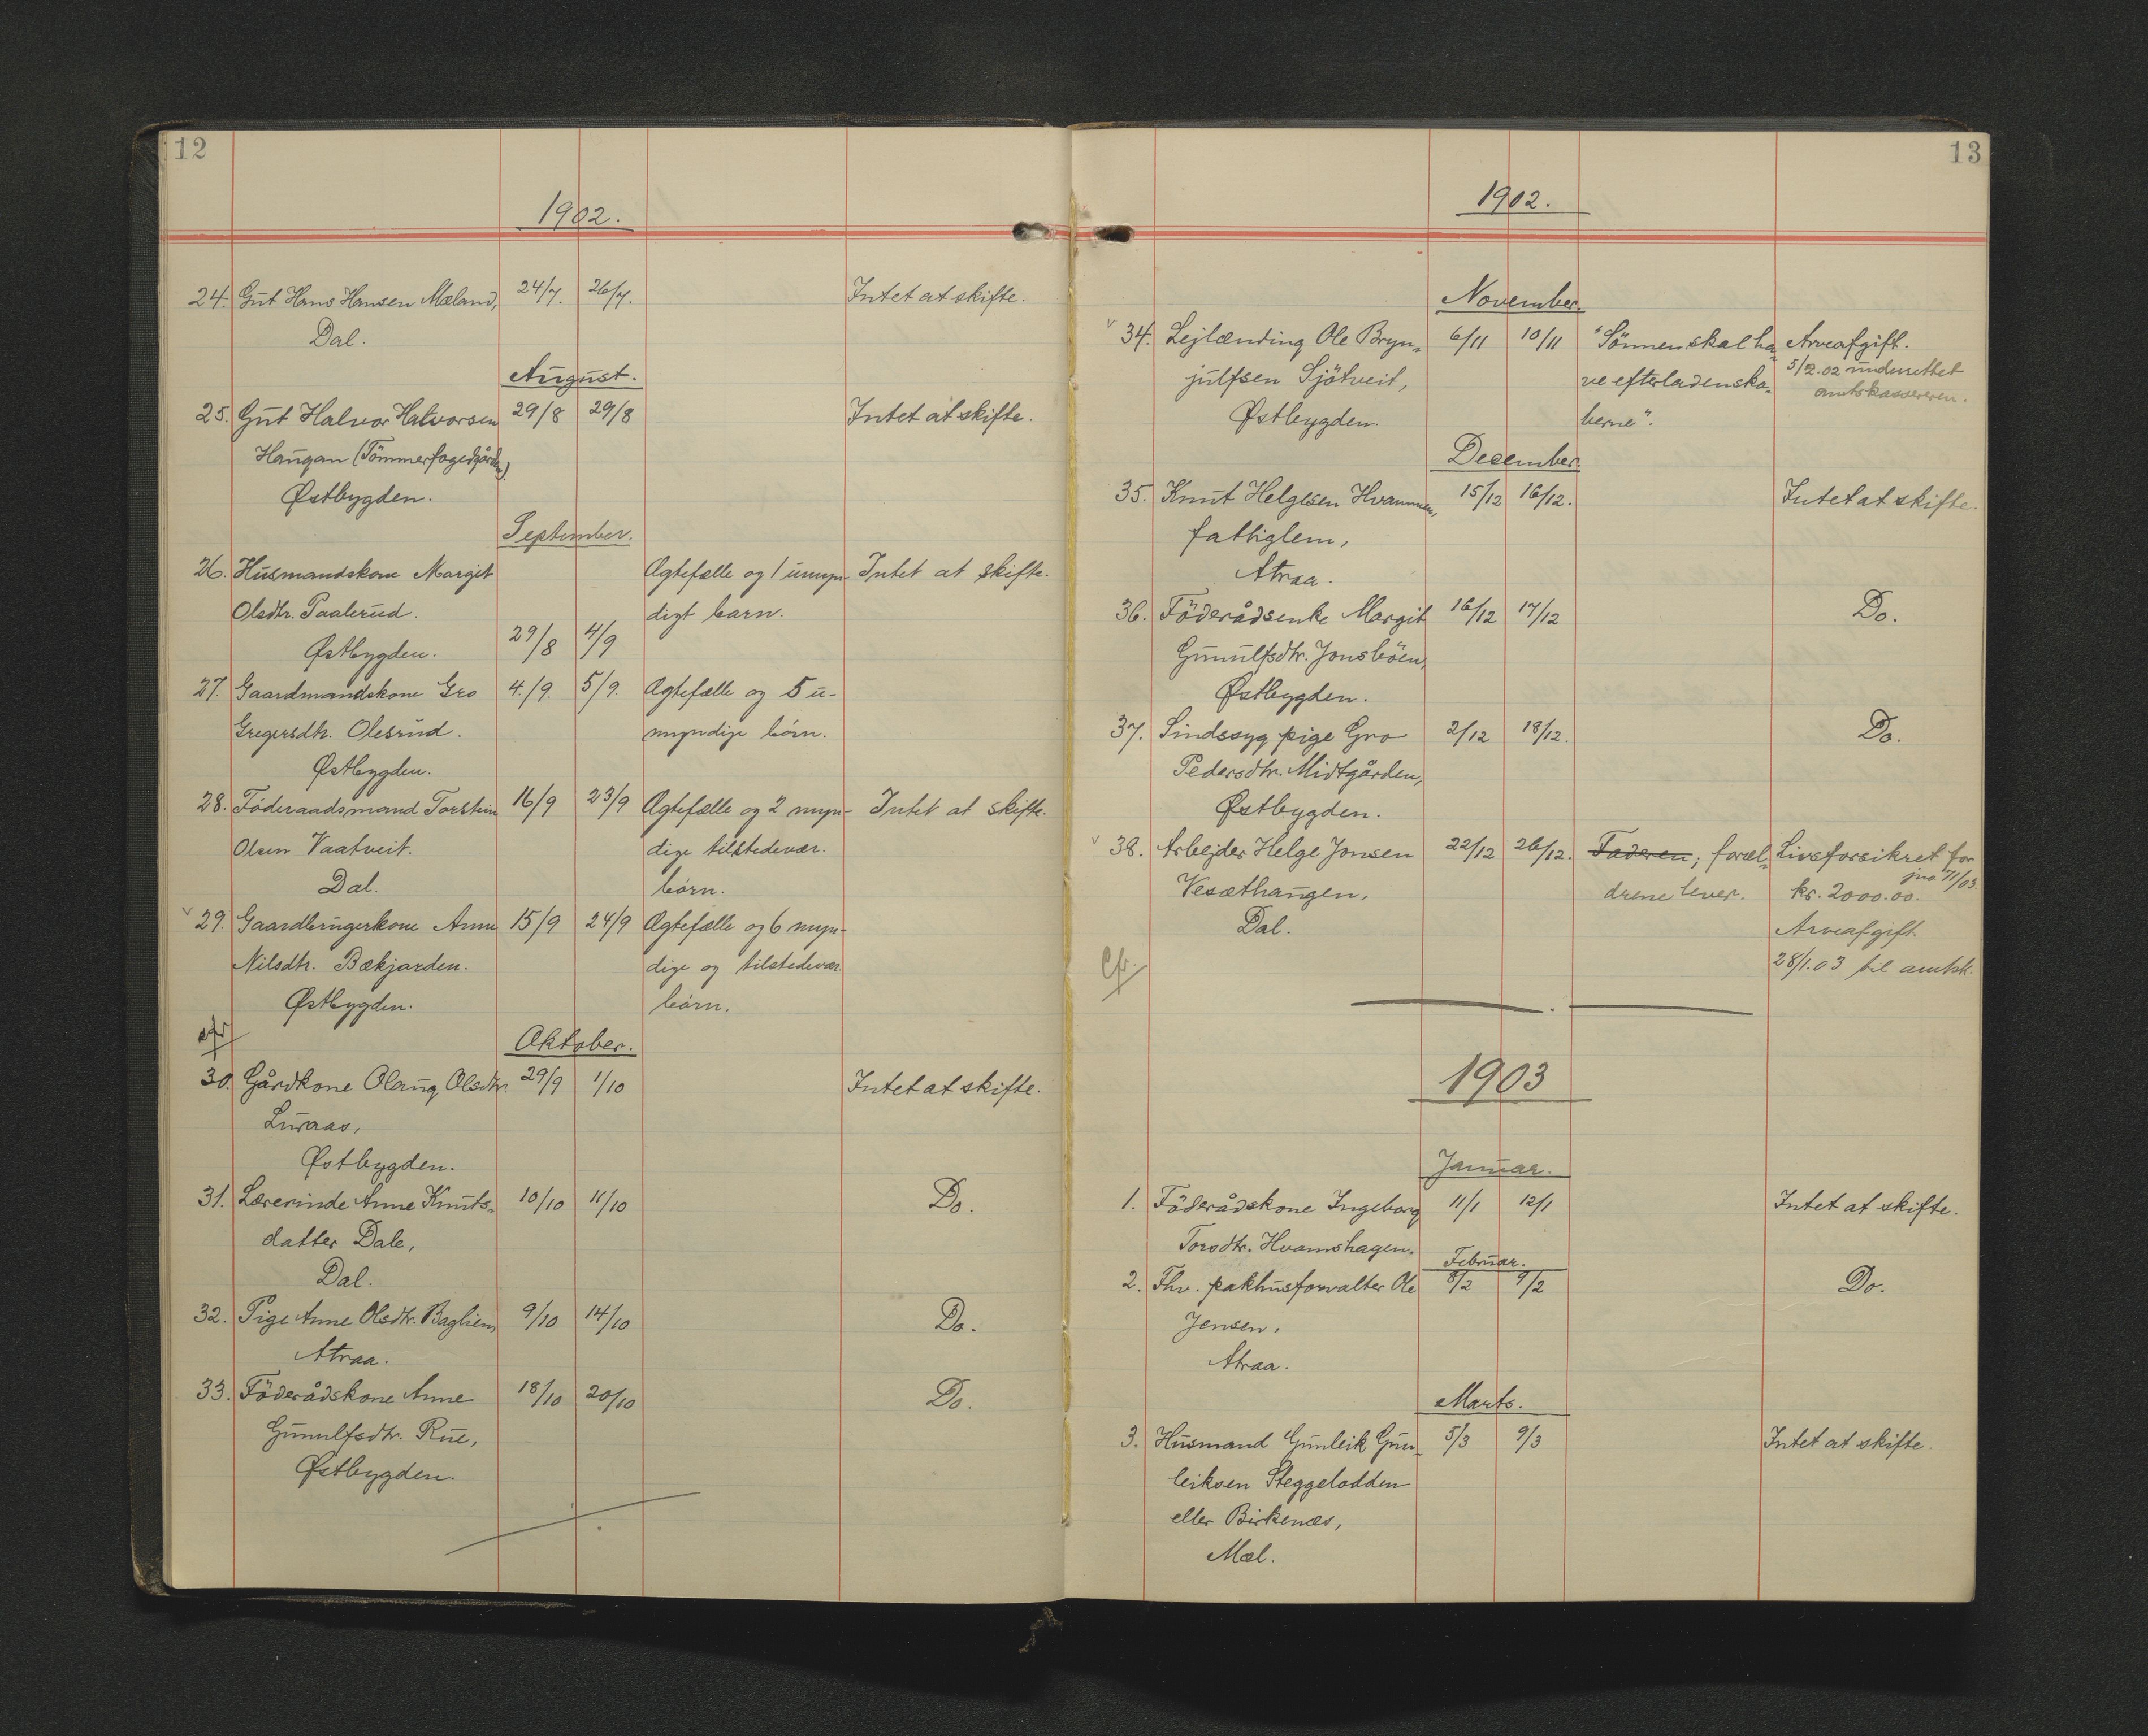 12
1902.
24. Gut Hans Hansen Mæland, 24/7. 26/7. Intet at skifte.
Dal.
August.
25. Gut Halvor Halvorsen 29/8 29/8 Intet at skifte.
Haugan (Tömmerfogedgården)
Østbygden.
September.
26. Husmandskone Margit Ægtefælle og 1 umyn- Intet at skifte.
Olsdtr. Paalerud. digt barn.
Østbygden. 29/8 4/9
27. Gaardmandskone Gro 4./9. 5/9. Ægtefælle og 5 u-
Gregersdtr. Olesrud. myndige börn.
Østbygden.
28. Föderaadsmand Torstein 16/9 23/9 Ægtefælle og 2 myn- Intet at skifte.
Olsen Vaatveit. dige tilstedevær.
Dal. börn.
v 29. Gaardbrugerkone Anne 15/9 24/9 Ægtefælle og 6 myn-
Nilsdtr. Bækjarden. dige og tilstedevær.
Østbygden. börn.
cfr
Oktober.
30. Gårdkone Olaug Olsdtr. 29/9 1/10 Intet at skifte.
Luraas,
Østbygden.
31. Lærerinde Anne Knuts- 10/10 11/10 Do.
datter Dale,
Dal.
32. Pige Anne Olsdtr. Baglien, 9/10 14/10 Do.
Atraa.
33. Föderådskone Anne 18/10 20/10 Do.
Gunulfsdtr. Rue,
Østbygden.
13
1902.
November.
v 34. Lejlænding Ole Bryn- 6/11 10/11 "Sönnen skal ha- Arveafgift.
julfsen Sjötveit, ve efterladenska- 5/12.02 underrettet
Østbygden. berne". amtskassereren.
December.
35. Knut Helgesen Hvammen, 15/12 16/12. Intet at skifte.
fattiglem,
Atraa.
36. Föderådsenke Margit 16/12 17/12 Do.
Gunulfsdtr. Jonsböen,
Østbygden.
37. Sindssyg pige Gro 2/12 18/12. Do.
Pedersdtr. Midtgården,
Østbygden.
v 38. Arbejder Helge Jonsen 22/12 26/12. Faderen; foræl- Livsforsikret for
Vesæthaugen, drene lever. kr. 2000.00. jno 71/03.
Dal. Arveafgift.
Cfr. 28/1.03 til amtsk.
1903
Januar.
1. Föderådskone Ingeborg 11/1 12/1 Intet at skifte.
Torsdtr. Hvamshagen.
Februar.
2. Fhv. pakhusforvalter Ole 8/2 9/2 Do.
Jensen,
Atraa.
Marts.
3. Husmand Gunleik Gun- 5/3 9/3 Intet at skifte.
leiksen Steggelodden
eller Birkenæs,
Mæl.